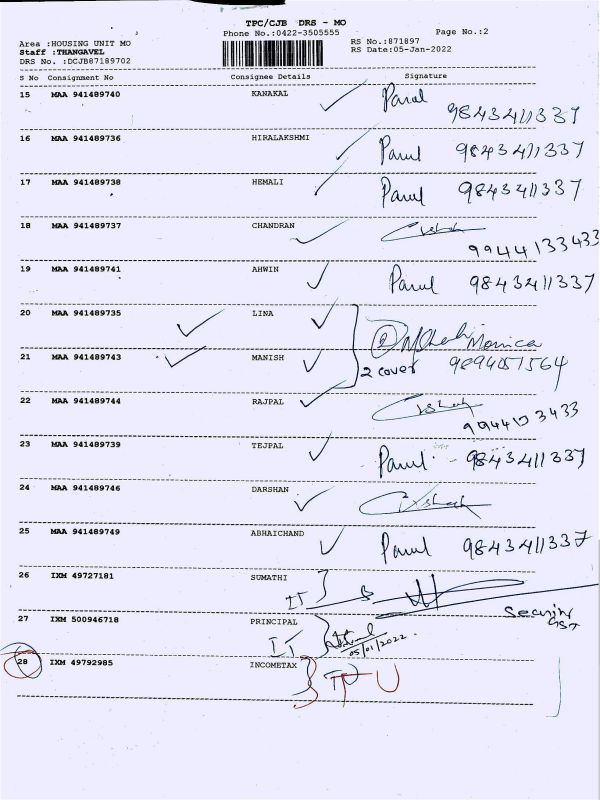 TPC/CJB DRS - MO
Phone No.:0422-3505555
Page No.:2
Area :HOUSING UNIT MO
RS No.:871897
Staff :THANGAVEL
RS Date:05-Jan-2022
DRS No. :DCJB87189702
S No Consignment No Consignee Details Signature
15 MAA 941489740 KANAKAL Parul
9843411337
16 MAA 941489736 HIRALAKSHMI Parul 9843411337
17 MAA 941489738 HEMALI Parul 9843411337
18 MAA 941489737 CHANDRAN
9944133433
19 MAA 941489741 AHWIN Parul 9843411337
20 MAA 941489735 LINA
Monica
21 MAA 941489743 MANISH 2 cover 9894051564
22 MAA 941489744 RAJPAL
23 MAA 941489739 TEJPAL Parul 9843411337
24 MAA 941489746 DARSHAN
25 MAA 941489749 ABHAICHAND Parul 9843411337
26 IXM 49727181 SUMATHI
IT
27 IXM 500946718 PRINCIPAL
IT 05/01/2022
28 IXM 49792985 INCOMETAX